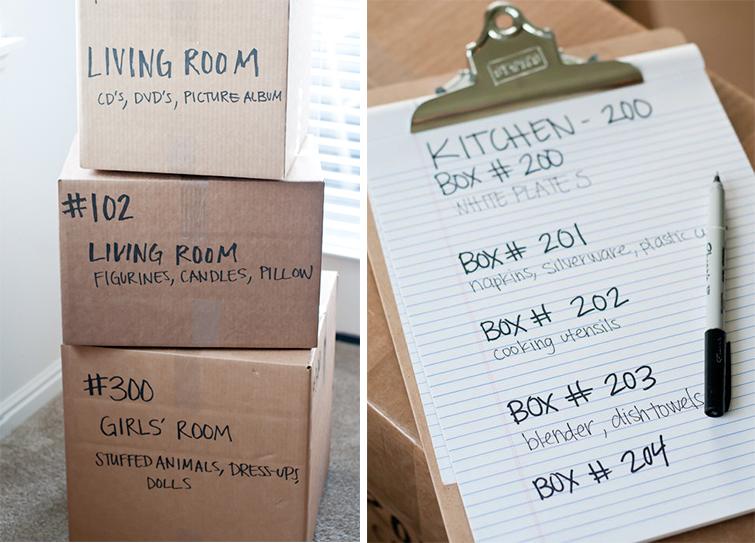 LIVING ROOM
CD'S, DVD'S, PICTURE ALBUM
#102
LIVING ROOM
FIGURINES, CANDLES, PILLOW
#300
GIRLS' ROOM
STUFFED ANIMALS, DRESS-UPS
DOLLS
KITCHEN - 200
BOX # 200
WHITE PLATES
BOX # 201
napkins, silverware, plastic u
BOX # 202
cooking utensils
BOX # 203
blender, dishtowels
BOX # 204